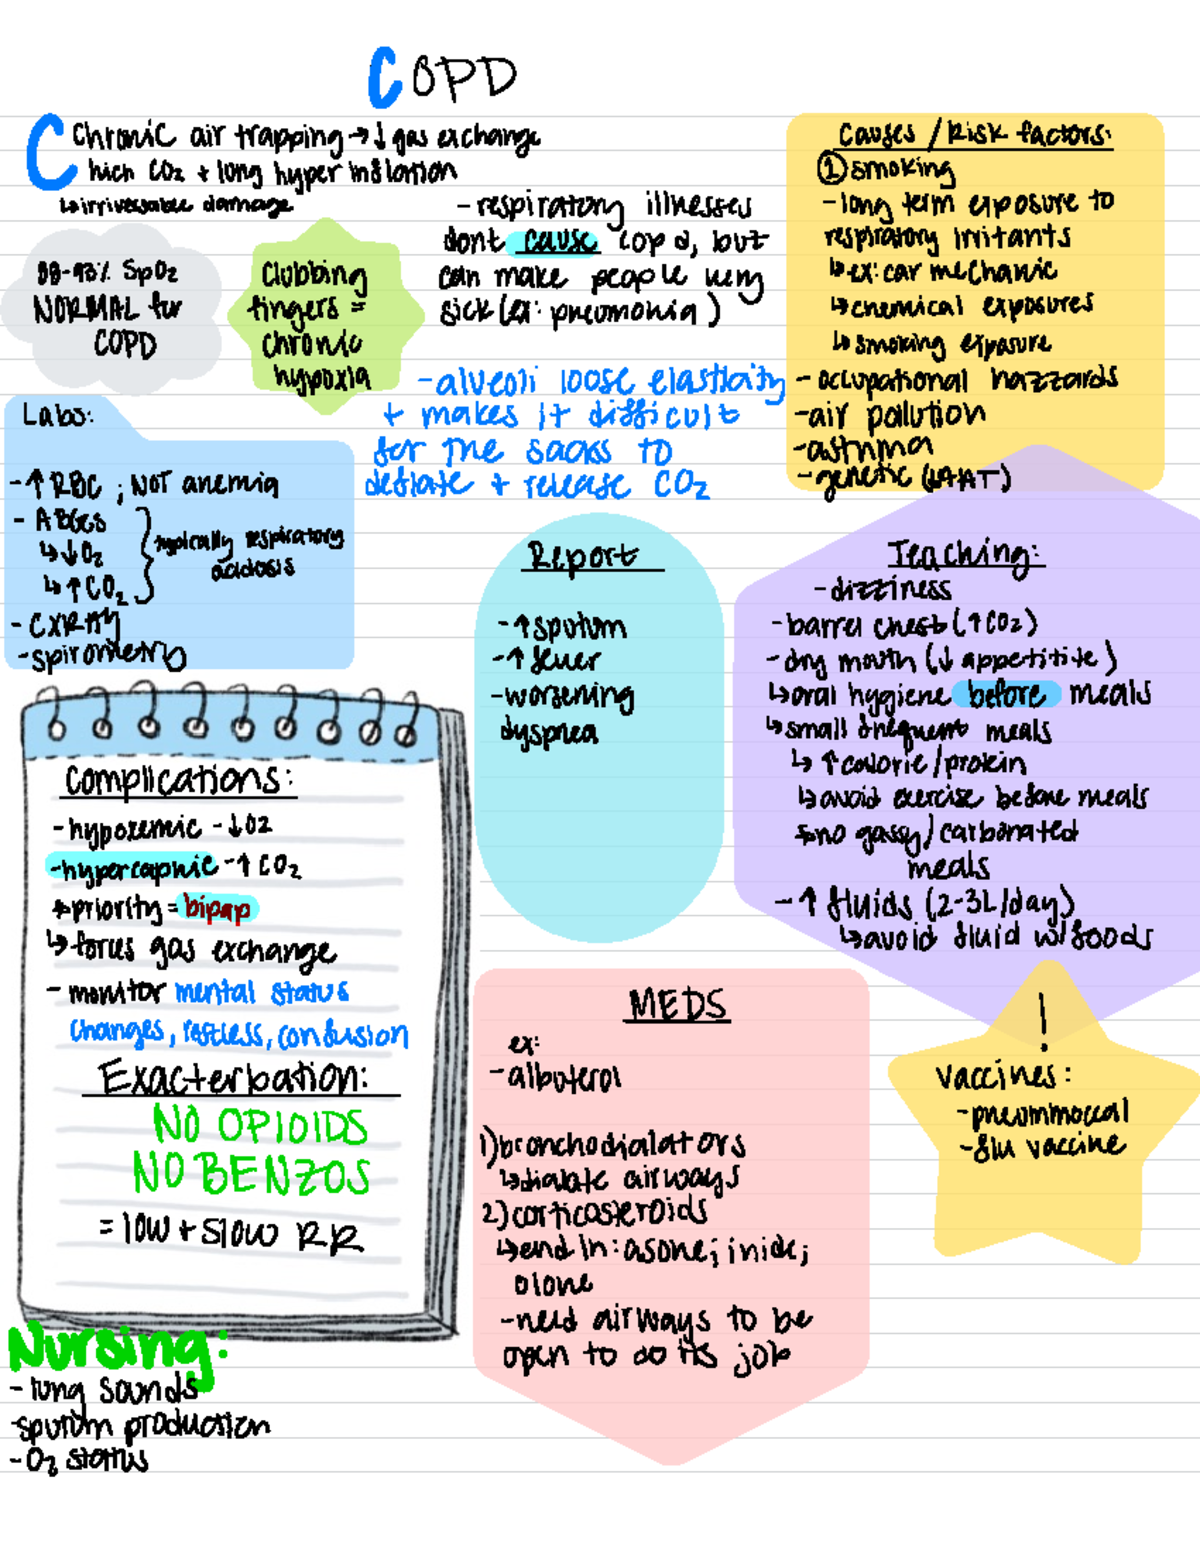 COPD
C Chronic air trapping → ↓ gas exchange
high CO2 + long hyper inflation
↳ irriversable damage
88-93% SpO2
NORMAL for
COPD
Clubbing
fingers =
chronic
hypoxia
- respiratory illnesses
dont cause copd, but
can make people very
sick (ex: pneumonia)
- alveoli loose elasticity
+ makes it difficult
for the sacks to
deflate + release CO2
Causes / Risk factors:
① smoking
- long term exposure to
respiratory irritants
↳ ex: car mechanic
↳ chemical exposures
↳ smoking exposure
- occupational hazzards
- air pollution
- asthma
- genetic (↓AAT)
Labs:
- ↑ RBC ; NOT anemia
- ABGs
↳ ↓O2
↳ ↑CO2
typically respiratory
acidosis
- CXRAY
- spirometry
Report
- ↑ sputum
- ↑ fever
- worsening
dyspnea
Teaching:
- dizziness
- barrel chest (↑CO2)
- dry mouth (↓ appetitite)
↳ oral hygiene before meals
↳ small frequent meals
↳ ↑ calorie/protein
↳ avoid exercise before meals
* no gassy/carbonated
meals
- ↑ fluids (2-3L/day)
↳ avoid fluid w/foods
Complications:
- hypoxemic - ↓O2
- hypercapnic - ↑ CO2
* priority = bipap
↳ forces gas exchange
- monitor mental status
changes, restless, confusion
Exacterbation:
NO OPIOIDS
NO BENZOS
= low + slow RR
MEDS
ex:
- albuterol
1) bronchodialators
↳ dialate airways
2) corticosteroids
↳ end in: asone; inide;
olone
- need airways to be
open to do its job
!
vaccines:
- pneummoccal
- flu vaccine
Nursing:
- lung sounds
- sputum production
- O2 status